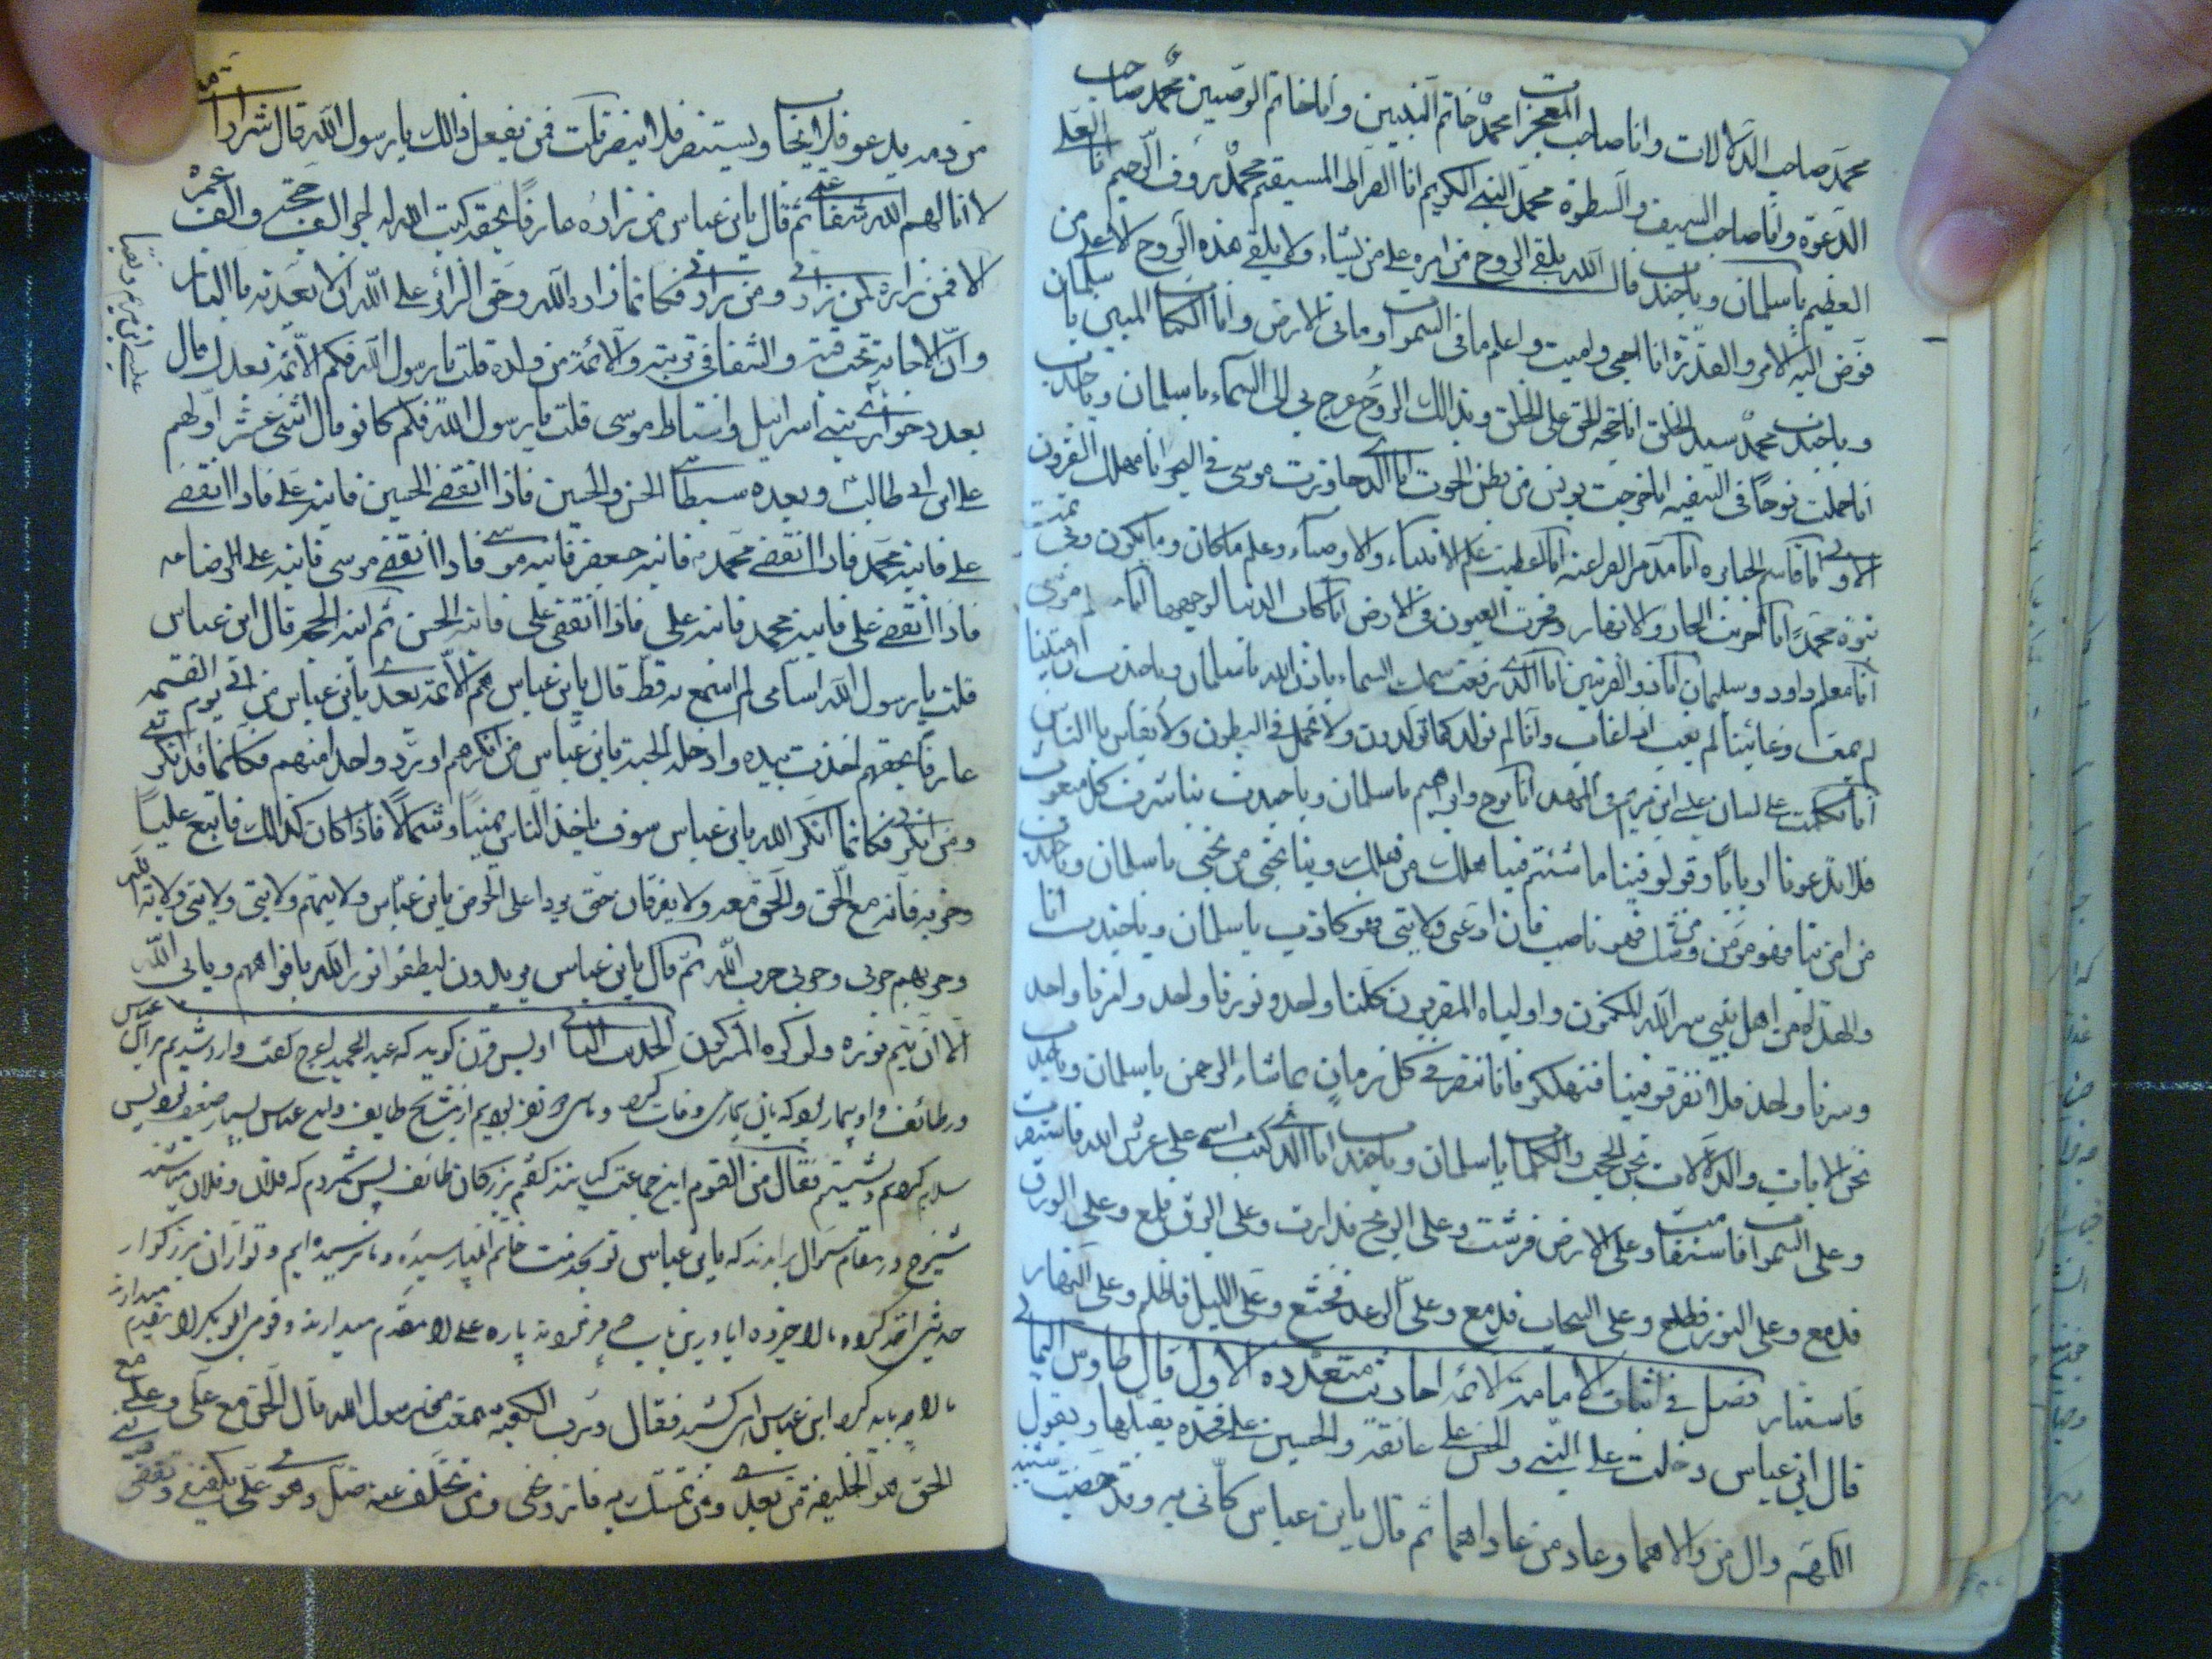 محمد صاحب الدلالات وانا صاحب المعجزات محمد خاتم النبيين وانا خاتم الوصيين محمد صاحب
الدعوة وانا صاحب السيف والسطوة محمد النبي الكريم انا الصراط المستقيم محمد رؤف الرحيم انا العلي
العظيم يا سلمان ويا جندب قال الله يلقي الروح من امره على من يشاء ولا يلقي هذه الروح الا على من
فوض اليه الامر والقدرة انا احيي واميت واعلم ما في السموات وما في الارض وانا الكتاب المبين يا سلمان
ويا جندب محمد سيد الخلق انا حجة الحق على الخلق وبذالك الروح عرج بي الى السماء يا سلمان ويا جندب
انا حملت نوحا في السفينه انا اخرجت يونس من بطن الحوت انا الذي جاوزت موسى في البحر انا مهلك القرون
الاولى انا قاسم الجبابره انا مدمر الفراعنه انا اعطيت علم الانبياء والاوصياء وعلم ما كان وما يكون وبي تمت
نبوة محمد انا اجريت البحار والانهار وفجرت العيون في الارض انا كاب الدنيا لوجهها
انا معلم داود وسليمان انا ذو القرنين انا الذي رفعت سمك السماء باذن الله يا سلمان ويا جندب ان ميتنا
لم يمت وغائبنا لم يغب اذا غاب وانا لم نولد كما تولدون ولا نحمل في البطون ولا يقاس بنا الناس
انا تكلمت على لسان عيسى ابن مريم في المهد انا نوح وابراهيم يا سلمان ويا جندب بنا شرف كل مبعوث
فلا تدعونا اربابا وقولو فينا ما شئتم فينا هلك من هلك وبنا نجي من نجي يا سلمان ويا جندب
من امن بنا فهو مومن ومن شك فهو ناصب فان ادعى ولايتي فهو كاذب يا سلمان ويا جندب انا
والهداة من اهل بيتي سر الله المكنون واولياه المقربون كلنا واحد ونورنا واحد وامرنا واحد
وسرنا واحد فلا تفرقو فينا فتهلكو فانا نظهر في كل زمان بما شاء الرحمن يا سلمان ويا جندب
نحن الايات والدلالات نحن الحجب والكلمات يا سلمان ويا جندب انا الذي كتب اسمي على عرش الله فاستقر
وعلى السموات فاستقامت وعلى الارض فرشت وعلى الريح فدارت وعلى البرق فلمع وعلى الورق
فدمع وعلى النور فطلع وعلى السحاب فدمع وعلى الرعد فخشع وعلى الليل فاظلم وعلى النهار
فاستنار فصل في اثبات الامامة الائمه احاديث متعدده الاول قال طاوس اليماني
قال ابن عباس دخلت على النبي والحسن على عاتقه والحسين على فخذه يقبلها ويقول
اللهم وال من والاهما وعاد من عاداهما ثم قال يابن عباس كاني به وقد خضبت شيبته
من دمه يدعو فلا يجاب ويستنصر فلا ينصر قلت فمن يفعل ذالك يا رسول الله قال شرار امتي
لا انالهم الله شفاعتي ثم قال يابن عباس من زاره عارفا بحقه كتب الله له اجر الف حجة والف عمره
الا فمن زاره كمن زارني ومن زارني فكانما زار الله وحق الزائر على الله ان لا يعذبه باالنار
وان الاجابة تحت قبته والشفا في تربته والائمة من ولده قلت يا رسول الله فكم الائمة بعدك قال
بعدد حوارى بني اسرائيل واسباط موسى قلت يا رسول الله فكم كانو قال اثنى عشر اولهم
علي ابن ابي طالب وبعده سبطاي الحسن والحسين فاذا انقضى الحسين فابنه علي فاذا انقضى
علي فابنه محمد فاذا انقضى محمد فابنه جعفر فابنه موسى فاذا انقضى موسى فابنه علي الرضا
فاذا انقضى علي فابنه محمد فابنه علي فاذا انقضى علي فابنه الحسن ثم ابنه الحجه قال ابن عباس
قلت يا رسول الله اسامي لم اسمع به قط قال يابن عباس هم الائمة بعدي يابن عباس من اتى يوم القيمه
عارفا بحقهم اخذت بيده وادخله الجنة يابن عباس من انكرهم او رد واحدا منهم فكانما قد انكرني
ومن انكرني فكانما انكر الله يابن عباس سوف ياخذ الناس يمينا وشمالا فاذا كان كذالك فاتبع عليا
وحزبه فانه مع الحق والحق معه ولا يفرقان حتى يردا على الحوض يابن عباس ولايتهم ولايتي ولايتي ولاية الله
وحربهم حربي وحربي حرب الله ثم قال يابن عباس يريدون ليطفؤا نور الله بافواههم ويابى الله
الا ان يتم نوره ولو كره المشركون الحديث الثاني اويس قرن گويد كه عبد الحميد اعرج گفت وارد شديم بر ابن عباس
در طائف واو بيمار بود كه بان بيماري وفات كرد وما سي نفر بوديم از مشايخ طايف وابن عباس بسيار ضعيف بود پس
سلام كرديم ونشستيم فقال من القوم اين جماعت كيانند گفتم بزرگان طائف پس شمردم كه فلان وفلان
شيخ در مقام سوال برامدند كه يابن عباس تو بخدمت خاتم انبيا رسيده وما نرسيده ايم وتو از ان بزرگوار
حديث اخذ كرده ما را خبر ده ايا درين باب چه فرموده پاره علي را مقدم ميدارند وقومي ابوبكر را تقديم ميدارند
ما را چه بايد كرد ابن عباس اه كشيد فقال ورب الكعبه سمعت من رسول الله قال الحق مع علي وعلي مع
الحق هو الخليفه من بعدي ومن تمسك به فاز ونجى ومن تخلف عنه ضل وهو علي يكفنني ويقضي ديني